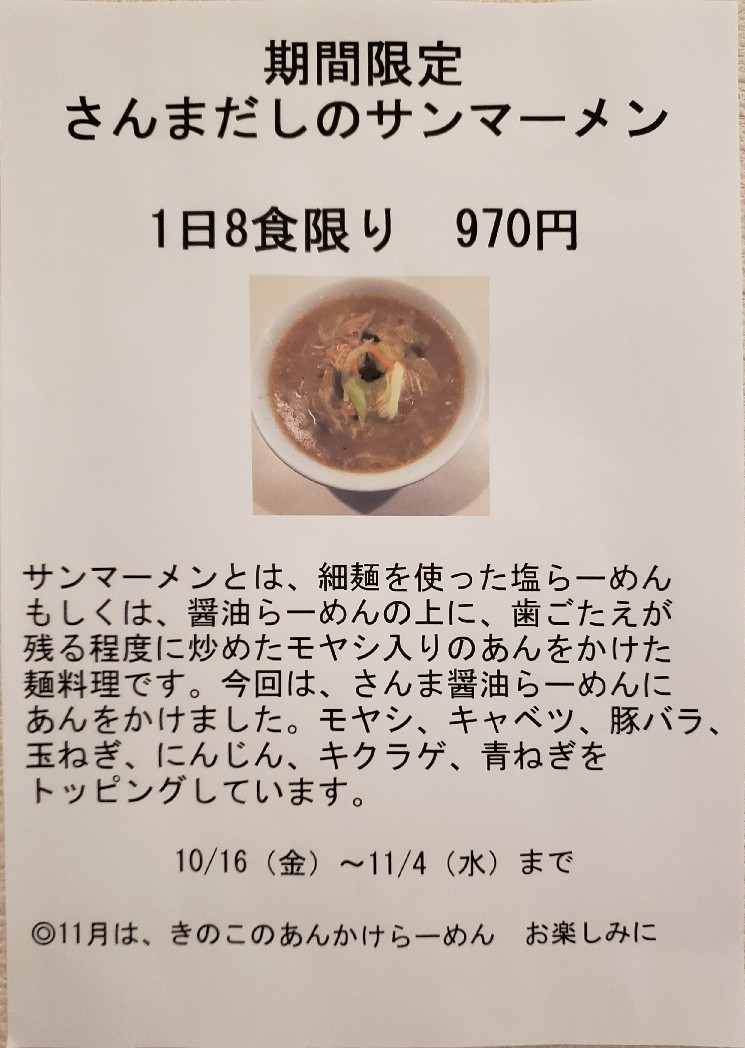 期間限定
さんまだしのサンマーメン
1日8食限り　970円
サンマーメンとは、細麺を使った塩らーめん
もしくは、醤油らーめんの上に、歯ごたえが
残る程度に炒めたモヤシ入りのあんをかけた
麺料理です。今回は、さんま醤油らーめんに
あんをかけました。モヤシ、キャベツ、豚バラ、
玉ねぎ、にんじん、キクラゲ、青ねぎを
トッピングしています。
10/16（金）～11/4（水）まで
◎11月は、きのこのあんかけらーめん　お楽しみに